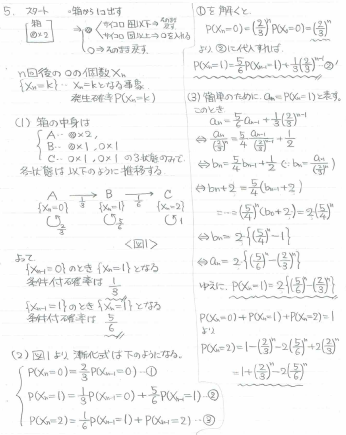 5. スタート
・箱から1コ出す
箱
◎×2
⇒ ◎
サイコロ 4以下→そのまま戻す
サイコロ 以上→0を入れる
0→そのまま戻す
n回後の0の個数Xn
{Xn=k}… Xn=kとなる事象
発生確率P(Xn=k)
(1) 箱の中身は
A… ◎×2,
B… ◎×1, 0×1
C… 0×1, 0×1 の3状態のみで
各状態は以下のように推移する
A 1/3→ B 1/6→ C
{Xn=0} {Xn=1} {Xn=2}
2/3 5/6 1
<図1>
よって
{Xn-1=0}のとき{Xn=1}となる
条件付確率は 1/3
{Xn-1=1}のとき{Xn=1}となる
条件付確率は 5/6
(2) 図1より漸化式は下のようになる。
P(Xn=0)=2/3P(Xn-1=0)…①
P(Xn=1)=1/3P(Xn-1=0)+5/6P(Xn-1=1)…②
P(Xn=2)=1/6P(Xn-1=1)+P(Xn-1=2)…③
①を解くと、
P(Xn=0)=(2/3)^n P(X0=0)=(2/3)^n
より、②に代入すれば、
P(Xn=1)=5/6P(Xn-1=1)+1/3(2/3)^{n-1}…②'
(3) 簡単のために an=P(Xn=1)と表す。
このとき
an=5/6 an-1+1/3(2/3)^{n-1}
⇔ an/(2/3)^n=5/4 an-1/(2/3)^{n-1}+1/2
⇔ bn=5/4bn-1+1/2 (∵bn=an/(2/3)^n)
⇔ bn+2=5/4(bn-1+2)
=…=(5/4)^n(b0+2)=2(5/4)^n
⇔ bn=2{(5/4)^n-1}
⇔ an=2{(5/6)^n-(2/3)^n}
ゆえに、P(Xn=1)=2{(5/6)^n-(2/3)^n}
P(Xn=0)+P(Xn=1)+P(Xn=2)=1
より
P(Xn=2)=1-(2/3)^n-2(5/6)^n+2(2/3)^n
=1+(2/3)^n-2(5/6)^n